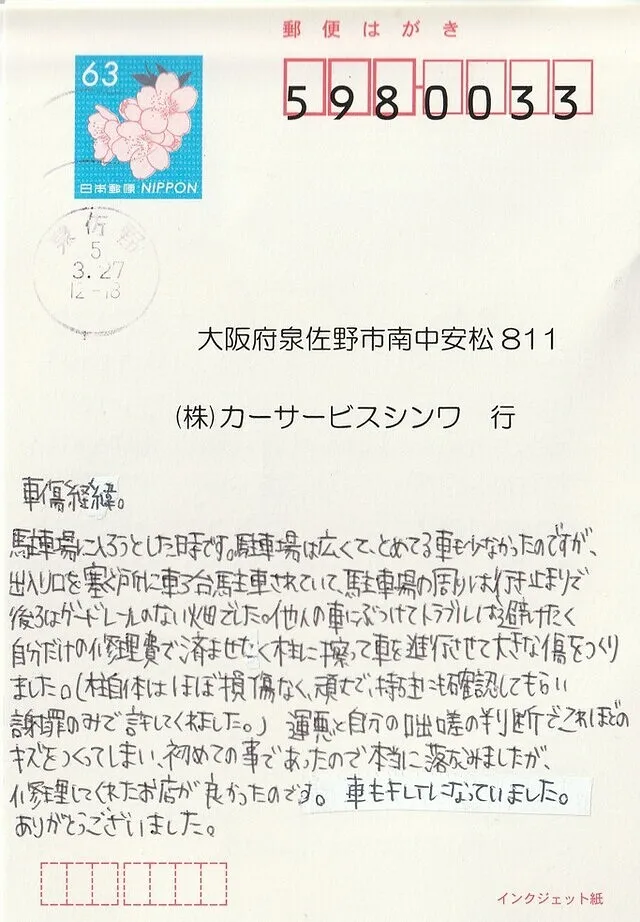 郵便はがき
63
日本郵便 NIPPON
5980033
泉佐野
5
3.27
12-18
大阪府泉佐野市南中安松811
(株)カーサービスシンワ 行
車傷経緯。
駐車場に入ろうとした時です。駐車場は広くて、とめてる車も少なかったのですが、
出入り口を塞ぐ所に車3台駐車されていて、駐車場の周りは行き止まりで
後ろはガードレールのない畑でした。他人の車にぶつけてトラブルは避けたく
自分だけの修理費で済ませたく柱に擦って車を進行させて大きな傷をつくり
ました。(柱自体はほぼ損傷なく、頑丈で、持ち主にも確認してもらい
謝罪のみで許してくれました。) 運悪と自分の咄嗟の判断でこれほどの
キズをつくってしまい、初めての事であったので本当に落ち込みましたが、
修理してくれたお店が良かったのです。車もキレイになっていました。
ありがとうございました。
インクジェット紙